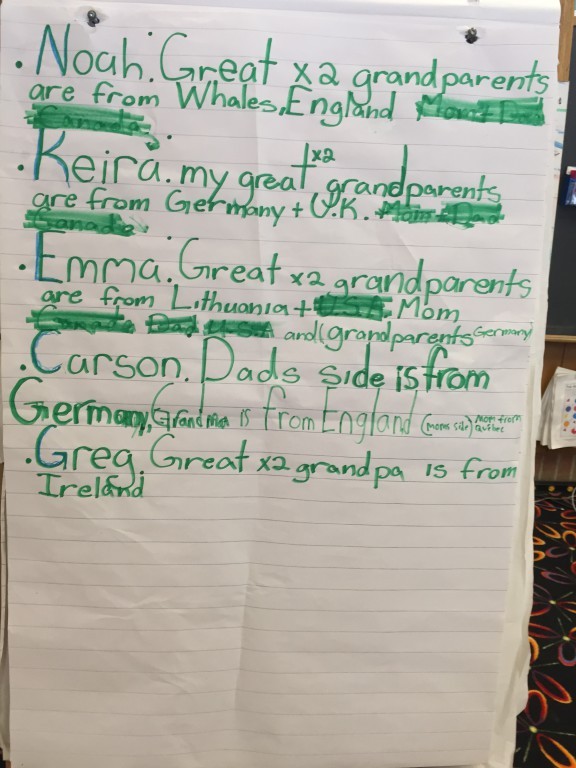 . Noah. Great x2 grandparents
are from Whales, England Mom + Dad
Canada
. Keira. my great x2 grandparents
are from Germany + U.K. Mom + Dad
Canada
. Emma. Great x2 grandparents
are from Lithuania + U.S.A. Mom
Canada Dad U.S.A and (grandparents Germany)
. Carson. Dads side is from
Germany, Grandma is from England (moms side) Mom from Quebec
. Greg. Great x2 grandpa is from
Ireland